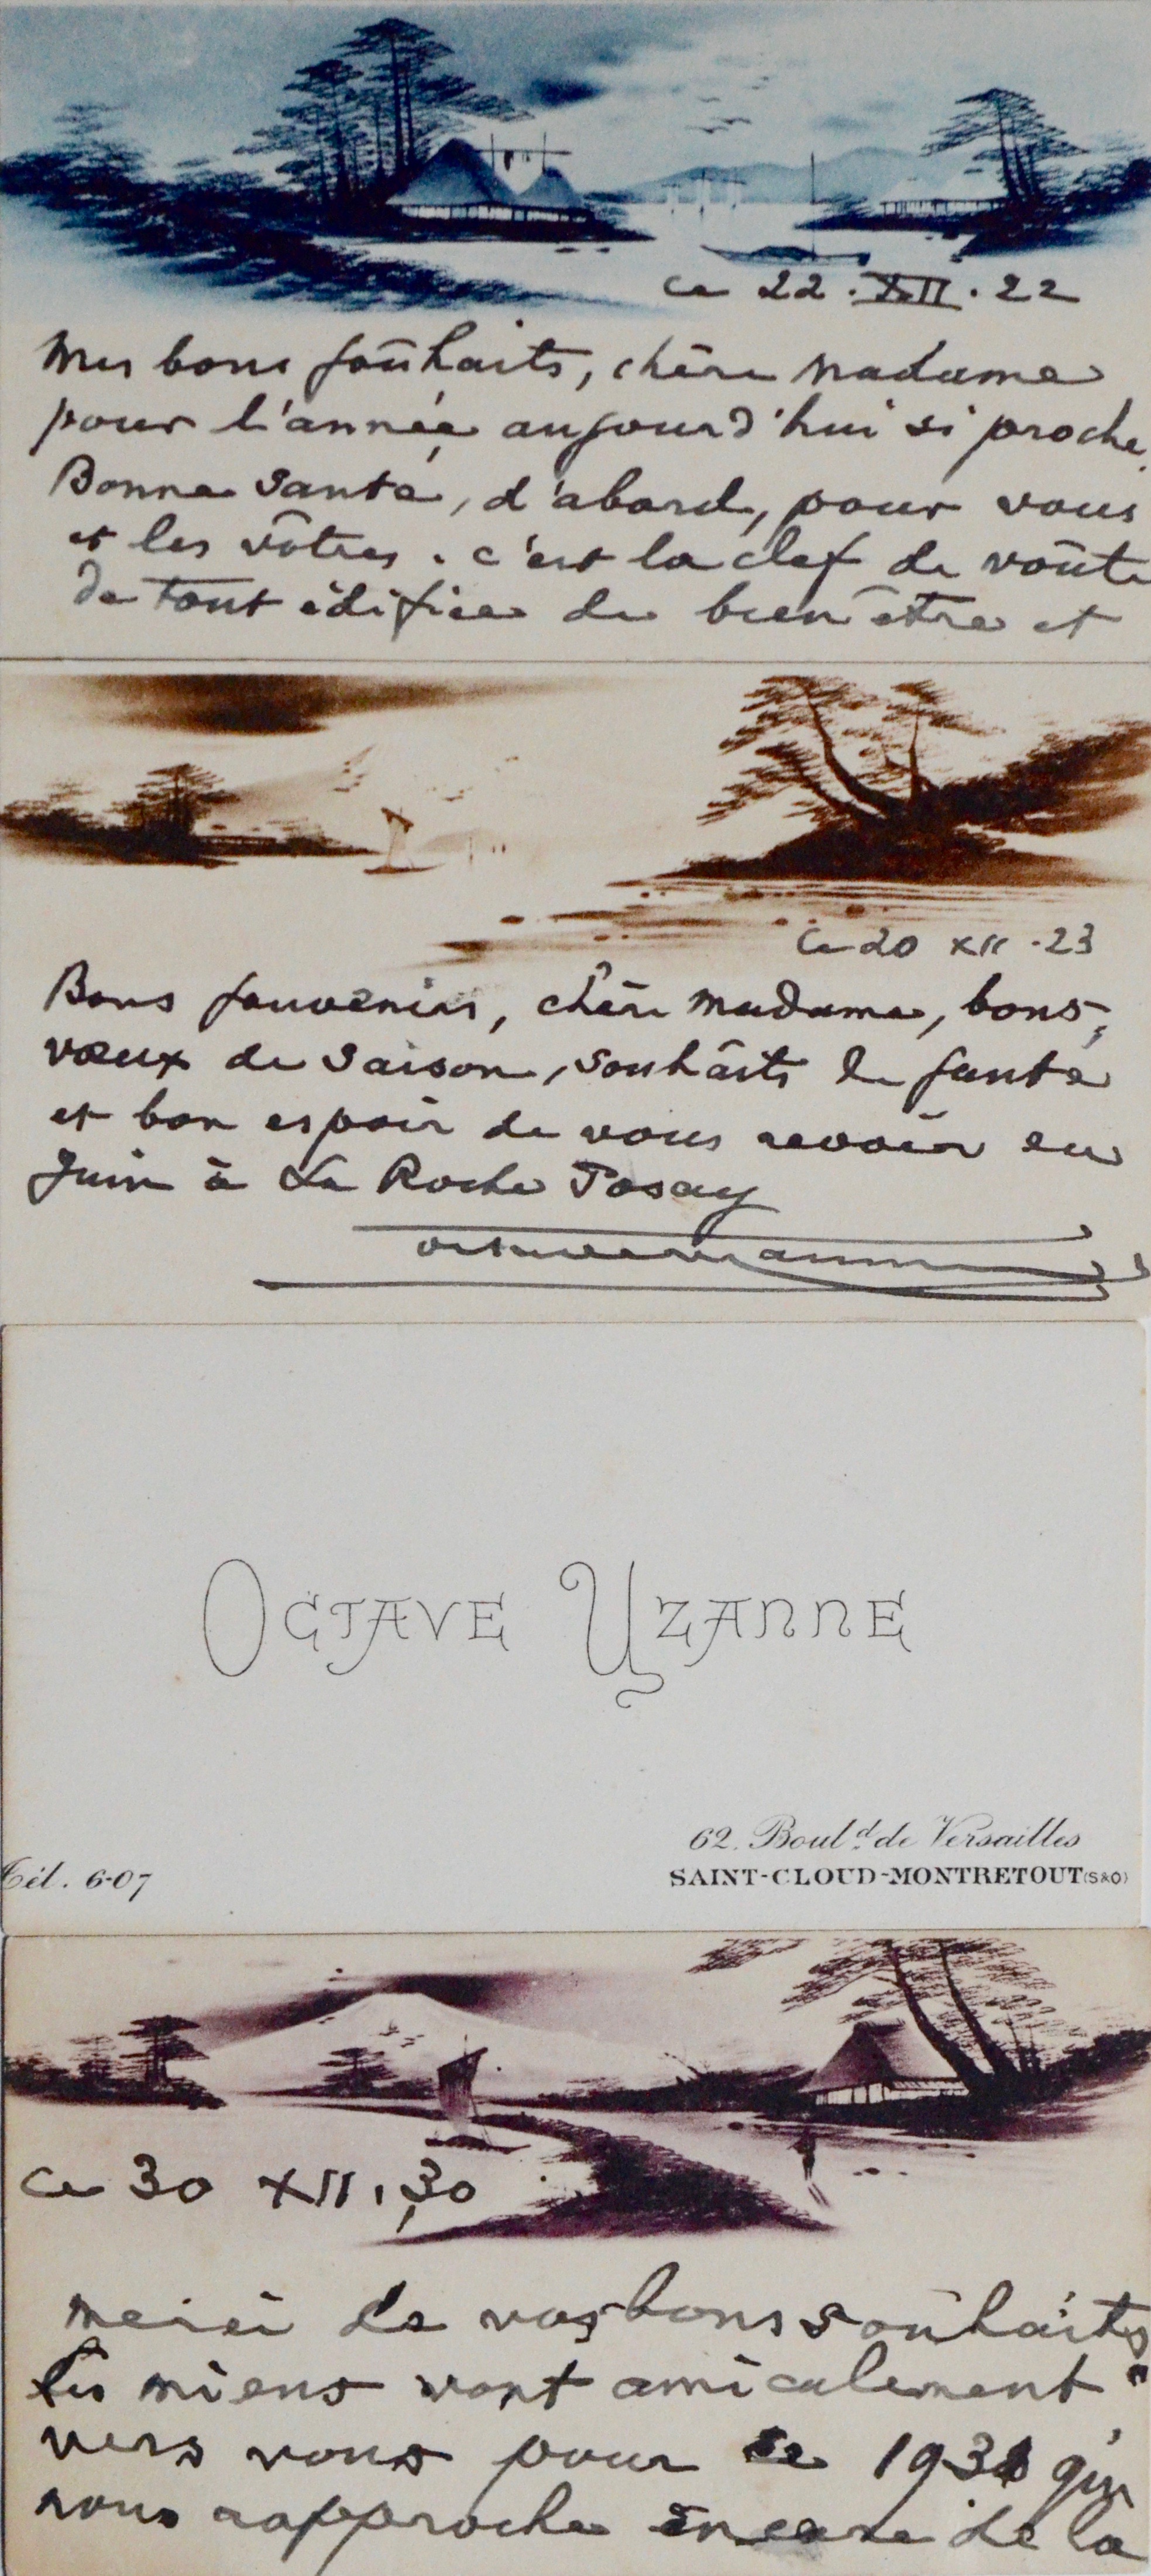 ce 22.XII.22
Mes bons souhaits, chère Madame
pour l'année aujourd'hui si proche.
Bonne Santé, d'abord, pour vous
et les vôtres. c'est la clef de voûte
de tout édifice de bien être et
Ce 20 XII.23
Bons souvenirs, chère Madame, bons
vœux de Saison, souhaits de santé
et bon espoir de vous revoir en
Juin à La Roche Posay
OCTAVE UZANNE
62. Boul.d de Versailles
Tél. 6-07
SAINT-CLOUD-MONTRETOUT (S&O)
Ce 30 XII.30
merci de vos bons souhaits
les miens vont amicalement
vers vous pour ce 1931 qui
nous rapproche encore de la